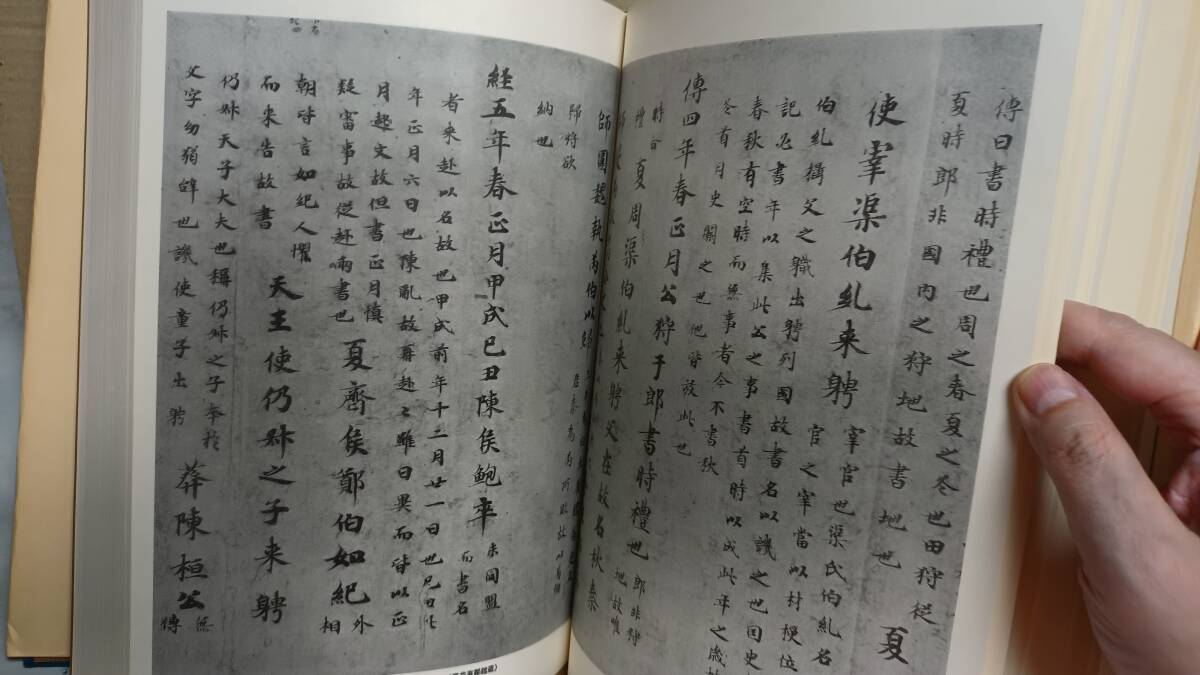 傳曰書時禮也周之春夏之冬也田狩從
夏時郎非國內之狩地故書地也 夏
使宰渠伯糺来聘 宰官也渠氏伯糺名
官之宰當以材授位
伯糺攝父之軄出聘列國故書名以譏之也囙史
記必書年以集此公之事書首時以成此年之歳故
春秋有空時而無事者今不書秋
冬首月史闕之也他皆放此也
傳四年春正月公狩于郎書時禮也 郎非狩
地故唯
時合
禮 夏周渠伯糺来聘父在故名秋秦
師圍魏執芮伯以歸
歸将欲
納也
経五年春正月甲戌己丑陳侯鮑卒 未同盟
而書名
者来赴以名故也甲戌前年十二月廿一日也己丑此
年正月六日也陳亂故再赴〻雖日異而皆以正
月起文故但書正月慎
疑審事故從赴兩書也 夏齊侯鄭伯如紀 外相
朝皆言如紀人懼
而来告故書 天王使仍叔之子来聘
仍叔天子大夫也稱仍叔之子本於
父字幼弱辞也譏使童子出聘 葬陳桓公 無
傳